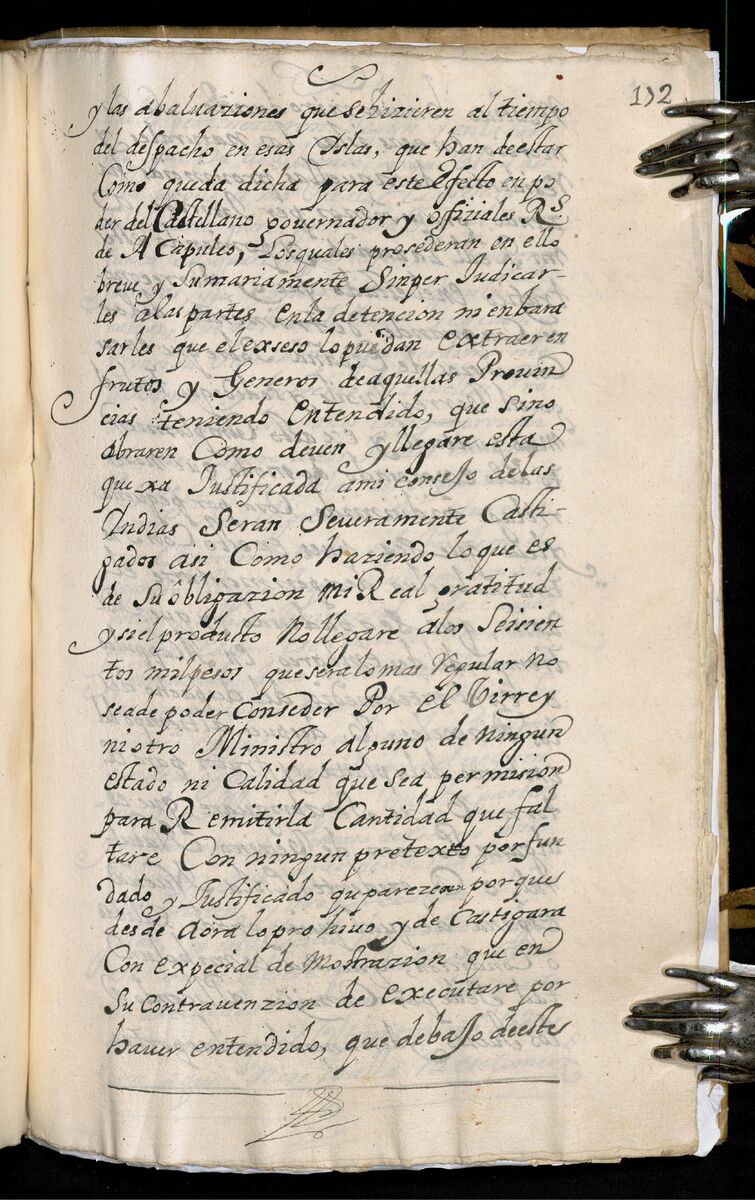 132
y las abaluaziones que se hizieren al tiempo
del despacho en esas Yslas, que han de estar
Como queda dicha para este Efecto en po
der del Castellano governador y offiziales R.s
de ACapulco, Los quales prosederan en ello
breve y Sumariamente Sinper Iudicar-
les alas partes en la detencion ni enbara
sarles que el exseso lo puedan extraer en
frutos y Generos de aquellas Provin
cias teniendo Entendido, que Sino
abraren Como deven y llegare esta
que xa Justificada ami consejo de las
Indias Seran Severamente Casti-
gados asi Como haziendo lo que es
de Su obligazion mi Real gratitud
y si el producto No llegare alos Seisien
tos mil pesos que sera lo mas regular no
sea de poder Conseder Por El Virrey
ni otro Ministro alguno de ningun
estado ni Calidad que sea permision
para Remitir la Cantidad que fal
tare Con ningun pretexto por fun
dado y Justificado que paresca porque
desde aora lo pro hivo y de Castigara
Con expecial de Mostrazion que en
Su Contravenzion de executare por
haver entendido, que debajo de estes